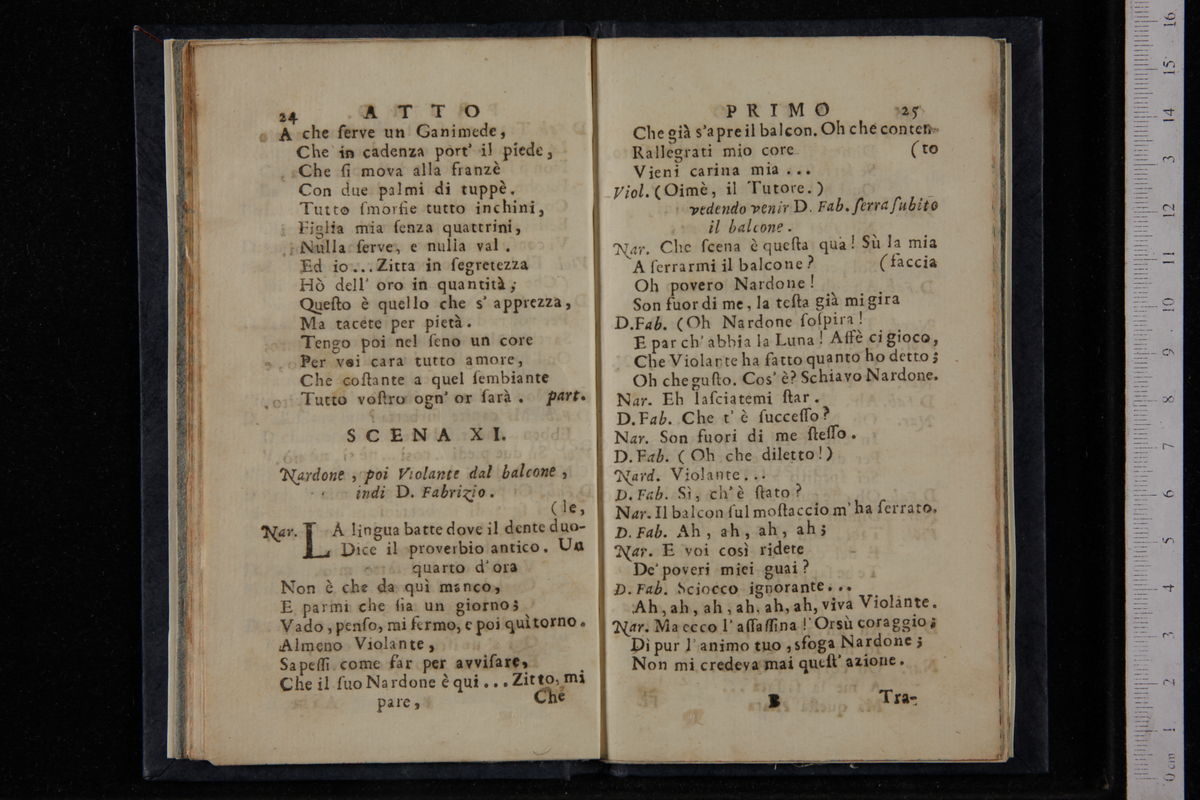 24 ATTO
A che ſerve un Ganimede,
Che in cadenza port' il piede,
Che ſi mova alla franzè
Con due palmi di tuppè.
Tutto ſmorfie tutto inchini,
Figlia mia ſenza quattrini,
Nulla ſerve, e nulla val.
Ed io... Zitta in ſegretezza
Hò dell' oro in quantità;
Queſto è quello che s' apprezza,
Ma tacete per pietà.
Tengo poi nel ſeno un core
Per voi cara tutto amore,
Che coſtante a quel ſembiante
Tutto voſtro ogn' or ſarà. part.
SCENA XI.
Nardone, poi Violante dal balcone,
indi D. Fabrizio.
(le,
Nar. LA lingua batte dove il dente duo-
Dice il proverbio antico. Un
quarto d'ora
Non è che da quì manco,
E parmi che ſia un giorno;
Vado, penſo, mi fermo, e poi quì torno.
Almeno Violante,
Sapeſſi come far per avviſare,
Che il ſuo Nardone è qui... Zitto, mi
pare, Che
PRIMO 25
Che già s'apre il balcon. Oh che conten-
Rallegrati mio core (to
Vieni carina mia...
Viol. (Oimè, il Tutore.)
vedendo venir D. Fab. ſerra ſubito
il balcone.
Nar. Che ſcena è queſta quà! Sù la mia
A ſerrarmi il balcone? (faccia
Oh povero Nardone!
Son fuor di me, la teſta già mi gira
D.Fab. (Oh Nardone ſoſpira!
E par ch' abbia la Luna! Affè ci gioco,
Che Violante ha fatto quanto ho detto;
Oh che guſto. Cos' è? Schiavo Nardone.
Nar. Eh laſciatemi ſtar.
D. Fab. Che t' è ſucceſſo?
Nar. Son fuori di me ſteſſo.
D. Fab. (Oh che diletto!)
Nard. Violante...
D. Fab. Sì, ch' è ſtato?
Nar. Il balcon ſul moſtaccio m' ha ſerrato.
D. Fab. Ah, ah, ah, ah;
Nar. E voi così ridete
De' poveri miei guai?
D. Fab. Sciocco ignorante...
Ah, ah, ah, ah, ah, ah, viva Violante.
Nar. Ma ecco l' aſſaſſina! Orsù coraggio;
Dì pur l' animo tuo, sfoga Nardone;
Non mi credeva mai queſt' azione.
B Tra-
0 cm 1 2 3 4 5 6 7 8 9 10 11 12 13 14 15 16